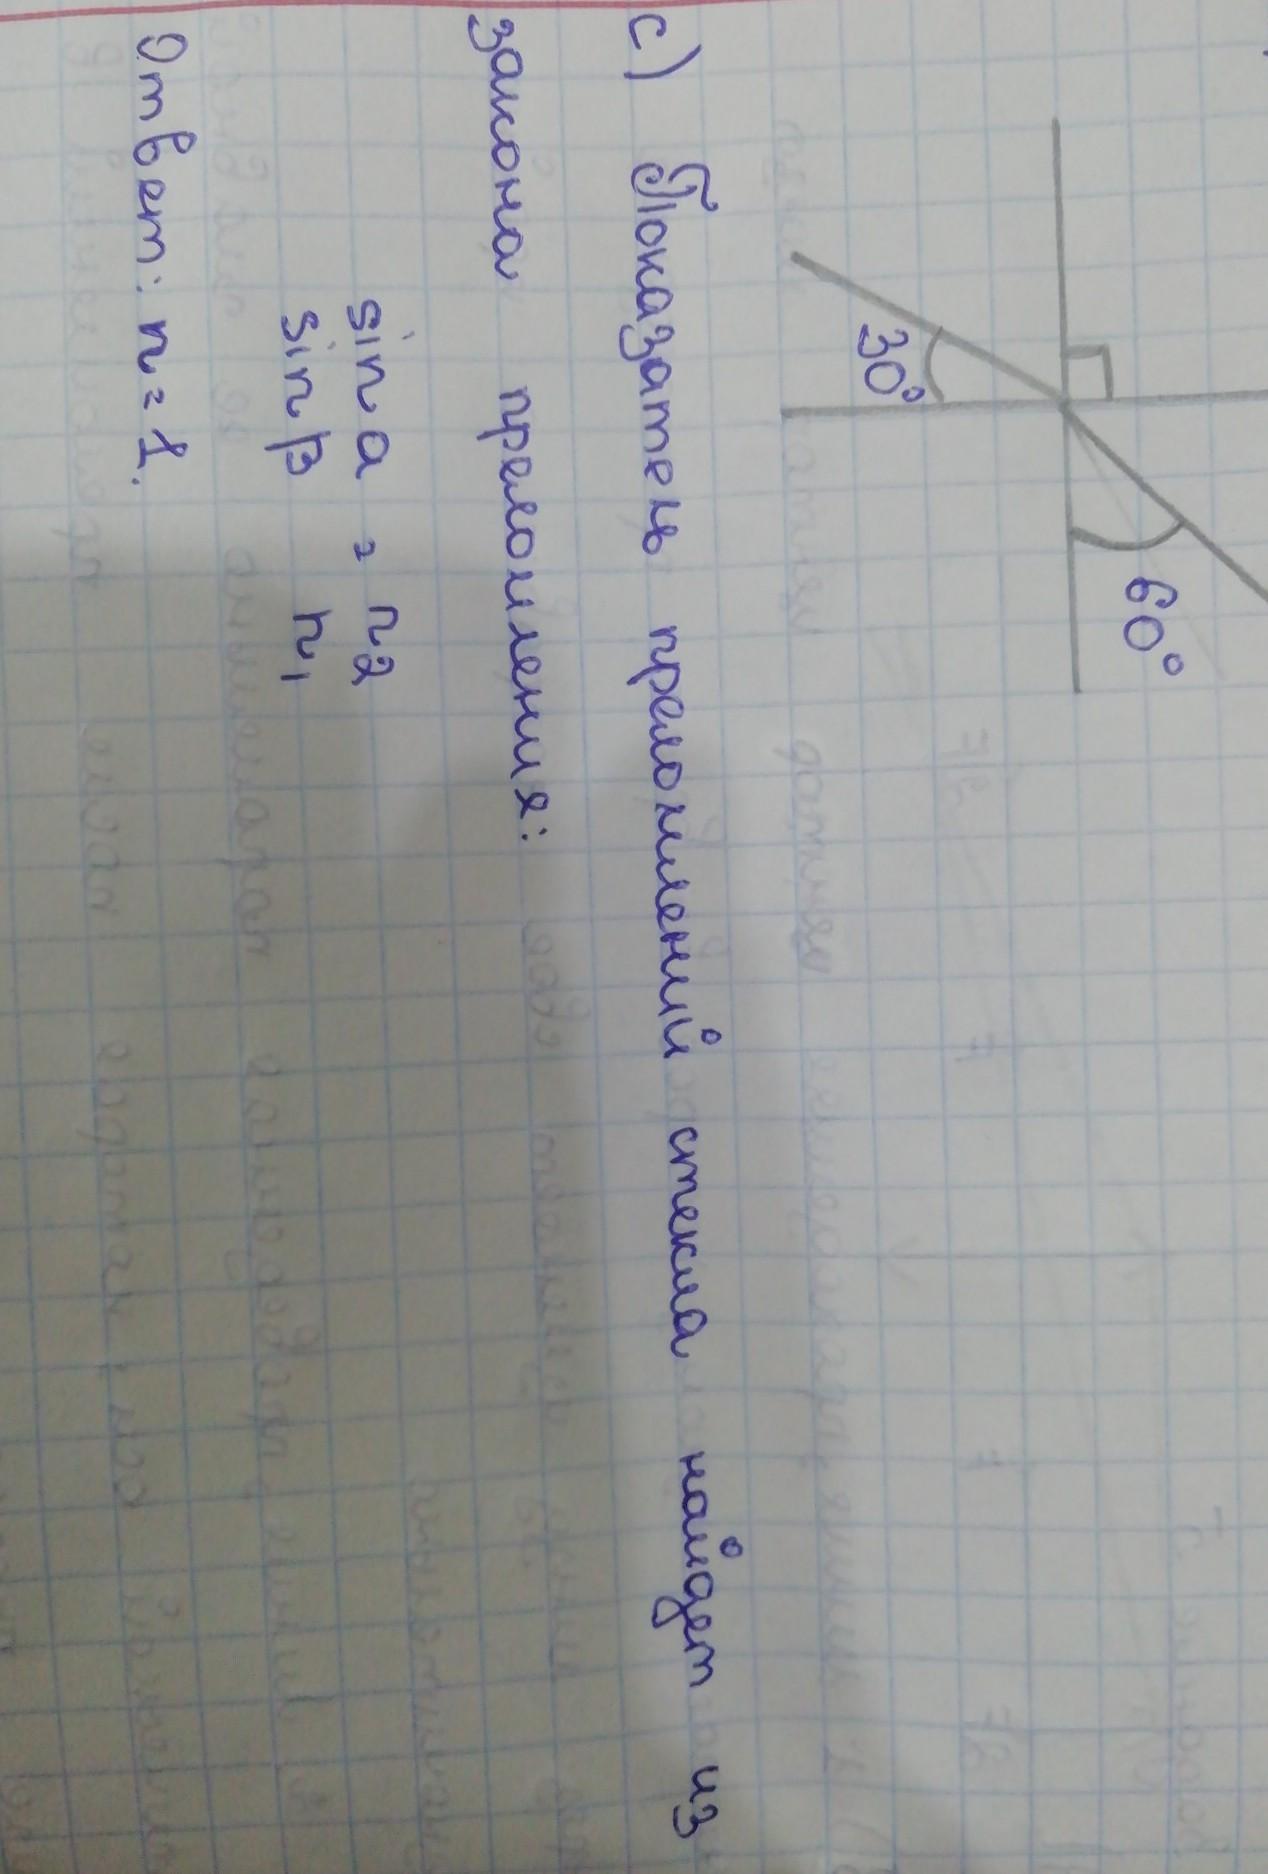 60°
30°
с) Показатель преломлений стекла найдет из
закона преломления:
sin a = n2
sin β n1
Ответ: n = 1.